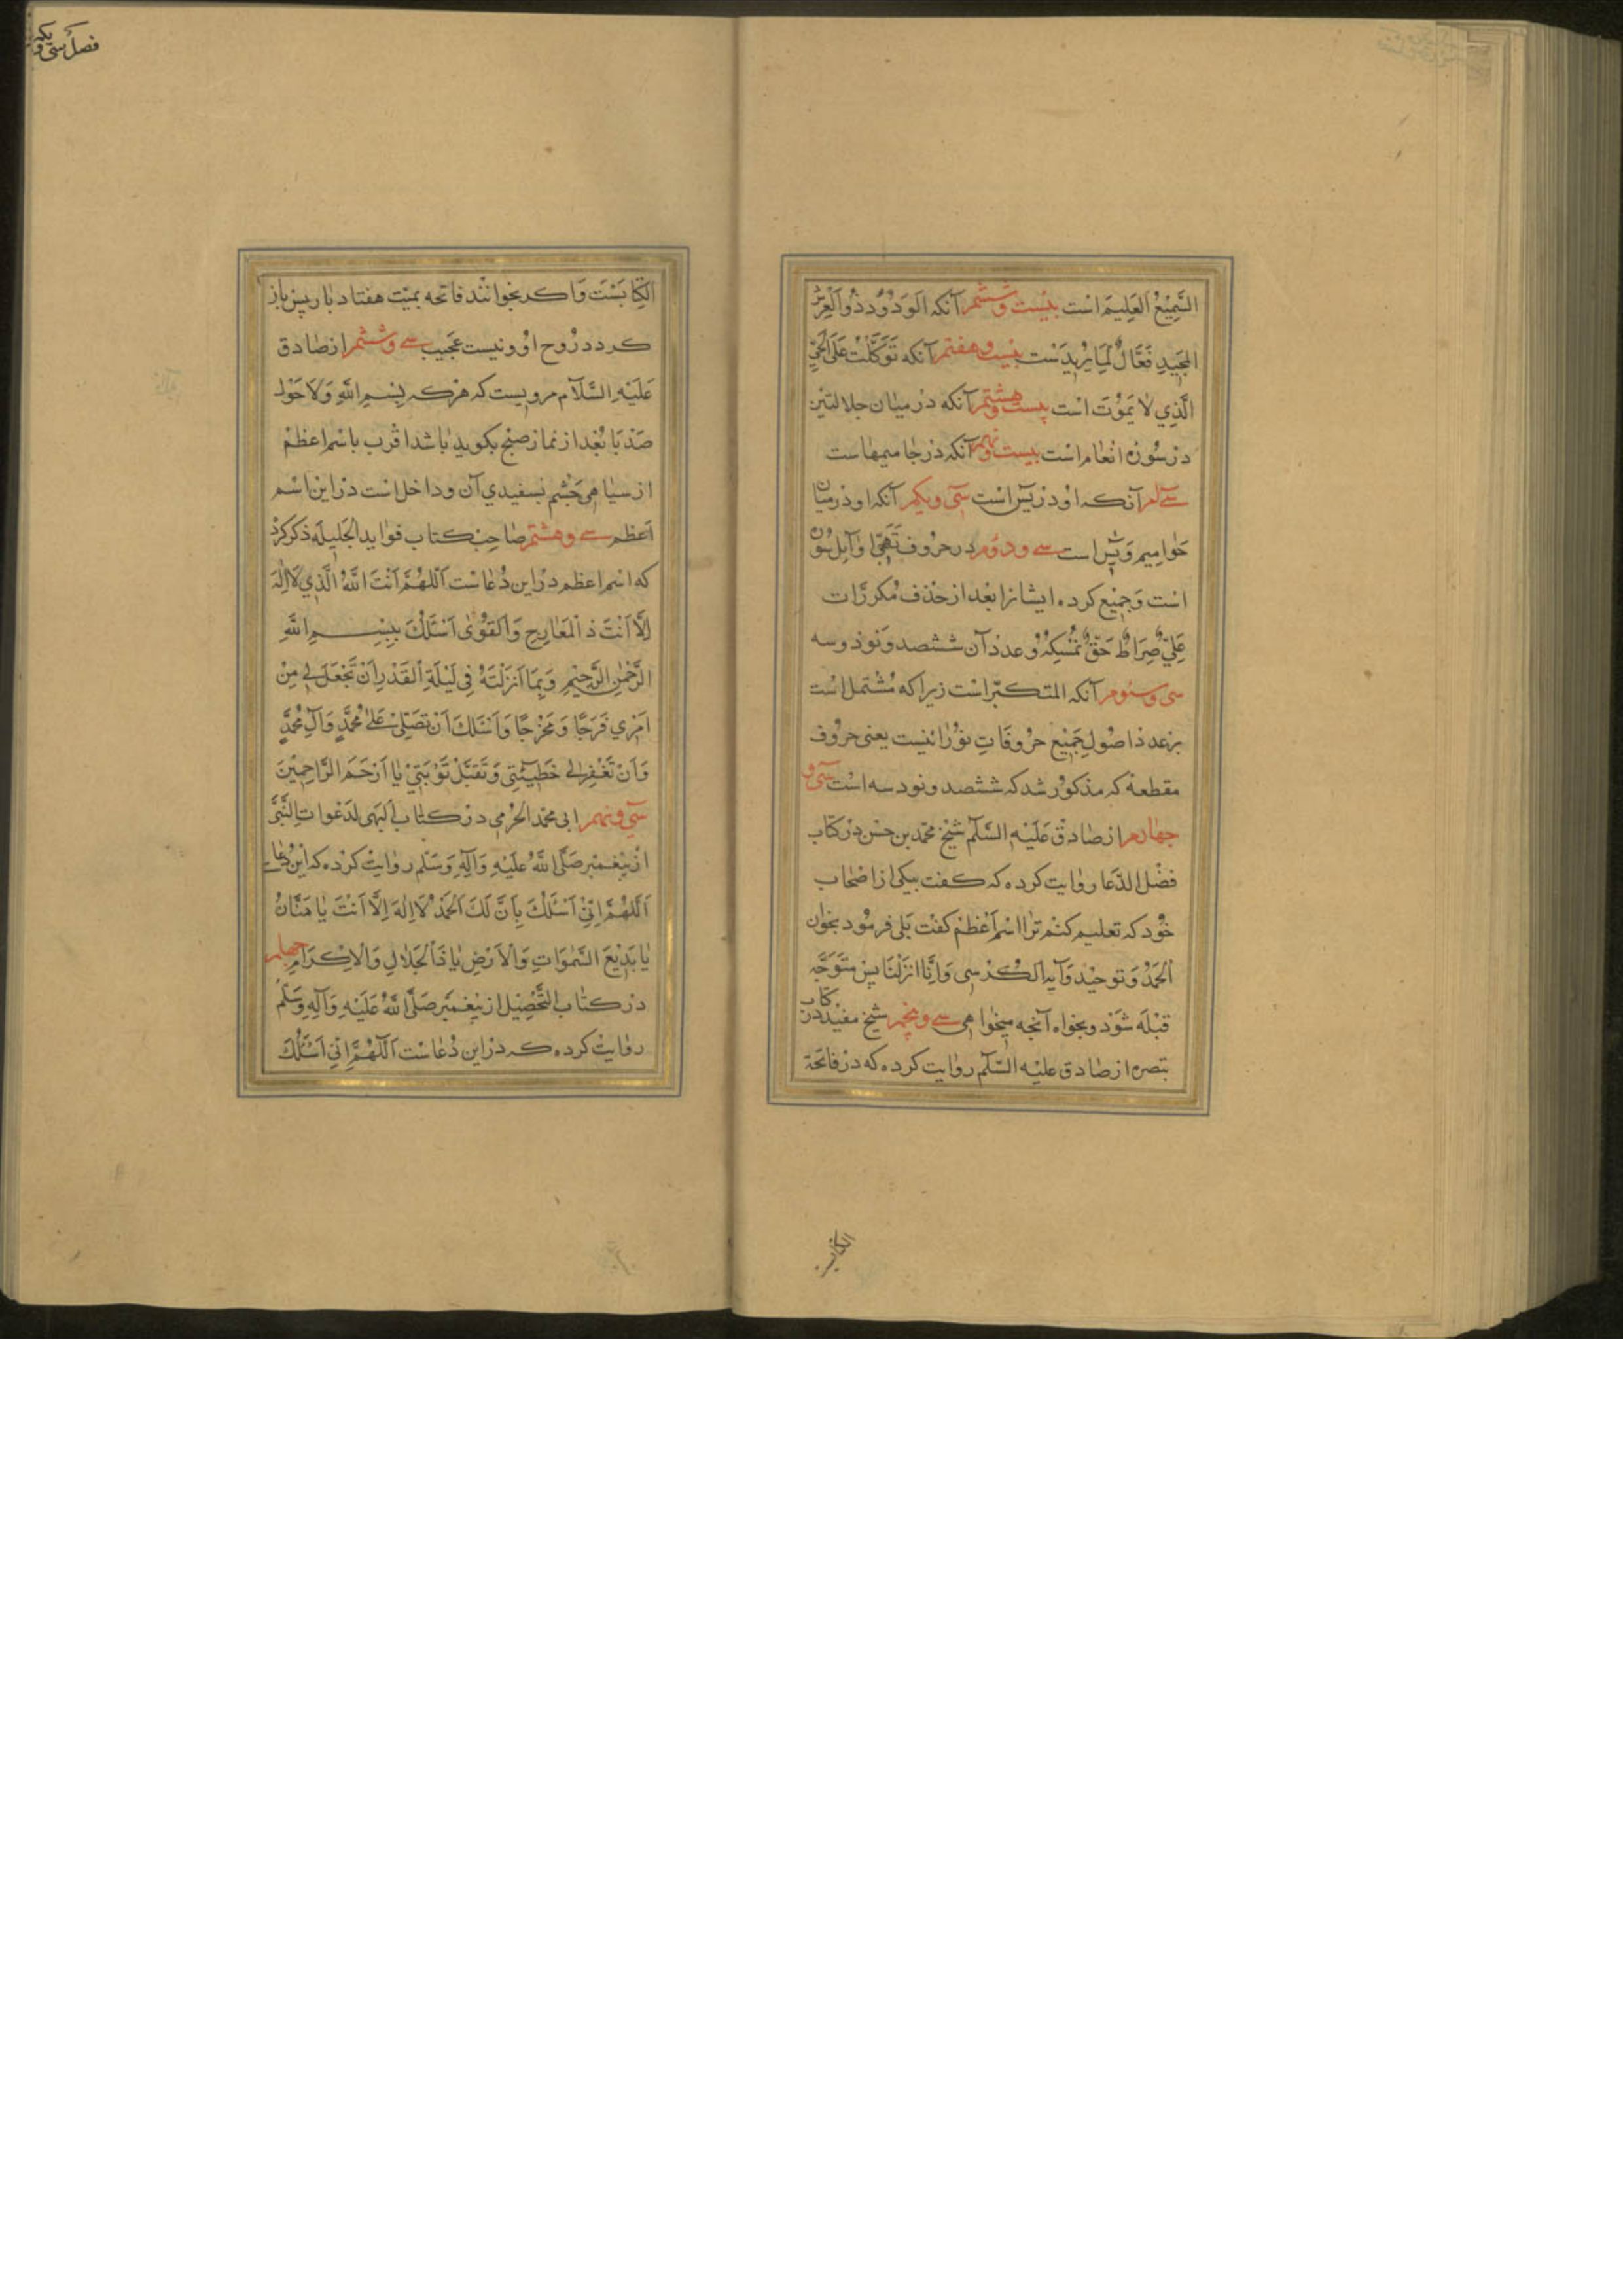 السَّمِيْعُ العَلِيم است بيست وششم آنكه الوَدُودُ ذُو العَرْش
المَجِيدِ فَعَّالٌ لِمَا يُرِيد است بيست وهفتم آنكه تَوَكَّلْتُ عَلَى الحَيِّ
الَّذِي لَا يَمُوْتَ است بيست وهشتم آنكه در ميان جلالتين
در سُورهٔ انعام است بيست ونهم آنكه در حاميمهاست
سى ام آنكه او در يٰس است سى ويكم آنكه او در ميان
حواميم ويٰس است سى ودوم در حروف تهجى اوايل سوره
است وجميع كرده ايشانرا بعد از حذف مكررات
عَلِيٌّ صِرَاطُ حَقٍّ نُمْسِكُهُ وعدد آن ششصد ونود وسه
سى وسوم آنكه المتكبّر است زيرا كه مشتمل است
بر عدد اصول جميع حروفات نورانيست يعنى حروف
مقطعه كه مذكور شد كه ششصد ونود سه است سى و
چهارم از صادق عَلَيْهِ السَّلٰم شيخ محمّد بن حسن در كتاب
فضل الدّعا روايت كرده كه كفت بيكى از اصحاب
خود كه تعليم كنم ترا اسم اعظم كفت بلى فرمود بخوان
الحَمْدُ وتوحيد وآية الكُرْسى وَاِنَّا انزَلْنَا پس متوجّه
قبله شود وبخواه آنچه ميخواهى سى وپنجم شيخ مفيد در كتاب
تبصره از صادق عليه السّلٰم روايت كرده كه در فاتحة
الكتا
فصل سى ويكم
الكِتابست وَاكر بخوانند فاتحه بميّت هفتاد بار پس باز
كردد روح او ونيست عجيب سى وششم از صادق
عَلَيْهِ السَّلَام مرويست كه هركه بِسْمِ اللّٰهِ وَلَا حَوْل
صد بار بعد از نماز صبح بكويد باشد اقرب باسم اعظم
از سياهى چشم بسفيدي آن وداخل است در اين اسم
اعظم سى وهشتم صاحب كتاب فوايد الجليله ذكر كرد
كه اسم اعظم در اين دُعاست اَللّٰهُمَّ اَنْتَ اللّٰهُ الَّذِي لَا اِلٰهَ
اِلَّا اَنْتَ ذَا المَعَارِجِ وَالقُوىٰ اَسْئَلُكَ بِبِسْمِ اللّٰهِ
الرَّحْمٰنِ الرَّحِيْمِ وَبِمَا اَنْزَلْتَهُ فِي لَيْلَةِ القَدْرِ اَنْ تَجْعَلَ لِي مِنْ
اَمْرِي فَرَجًا وَمَخْرَجًا وَاَسْئَلُكَ اَنْ تُصَلِّيَ عَلىٰ مُحَمَّدٍ وَآلِ مُحَمَّدٍ
وَاَنْ تَغْفِرَ لِي خَطِيْئَتِي وَتَقَبَّلْ تَوْبَتِيْ يَا اَرْحَمَ الرَّاحِمِيْنَ
سى ونهم ابى محمّد الحرمي در كتاب لدَعْوات النّبى
از پيغمبر صَلَّى اللّٰهُ عَلَيْهِ وَآلِهِ وَسَلَّم روايت كرده كه اين دعاى
اَللّٰهُمَّ اِنِّيْ اَسْئَلُكَ بِاَنَّ لَكَ الحَمْدُ لَا اِلٰهَ اِلَّا اَنْتَ يَا مَنَّانُ
يَا بَدِيْعَ السَّمٰوَاتِ وَالْاَرْضِ يَا ذَا الجَلَالِ وَالْاِكْرَامِ چهلم
در كتاب التّحصيل از پيغمبر صَلَّى اللّٰهُ عَلَيْهِ وَآلِهِ وَسَلَّمَ
روايت كرده كه در اين دُعاست اَللّٰهُمَّ اِنِّي اَسْئَلُكَ